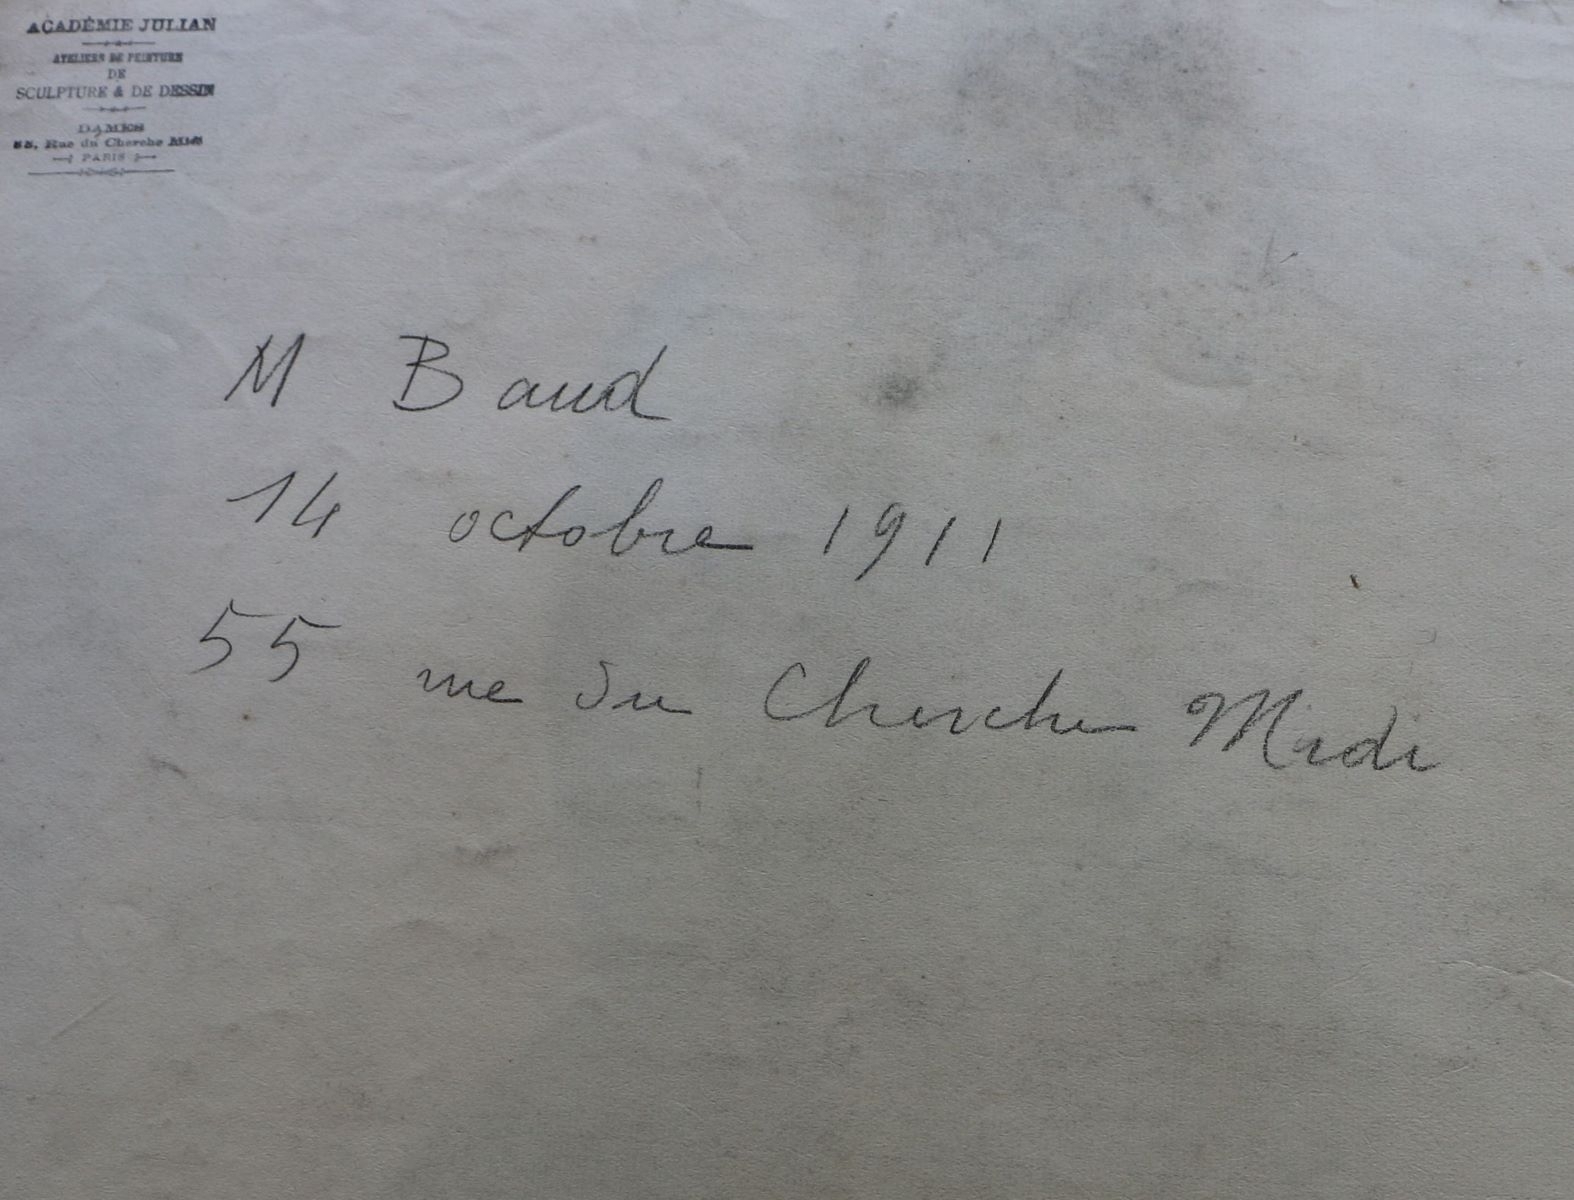 ACADÉMIE JULIAN
ATELIERS DE PEINTURE
DE
SCULPTURE & DE DESSIN
DAMES
55, Rue du Cherche Midi
PARIS
M Baud
14 octobre 1911
55 rue du Cherche Midi